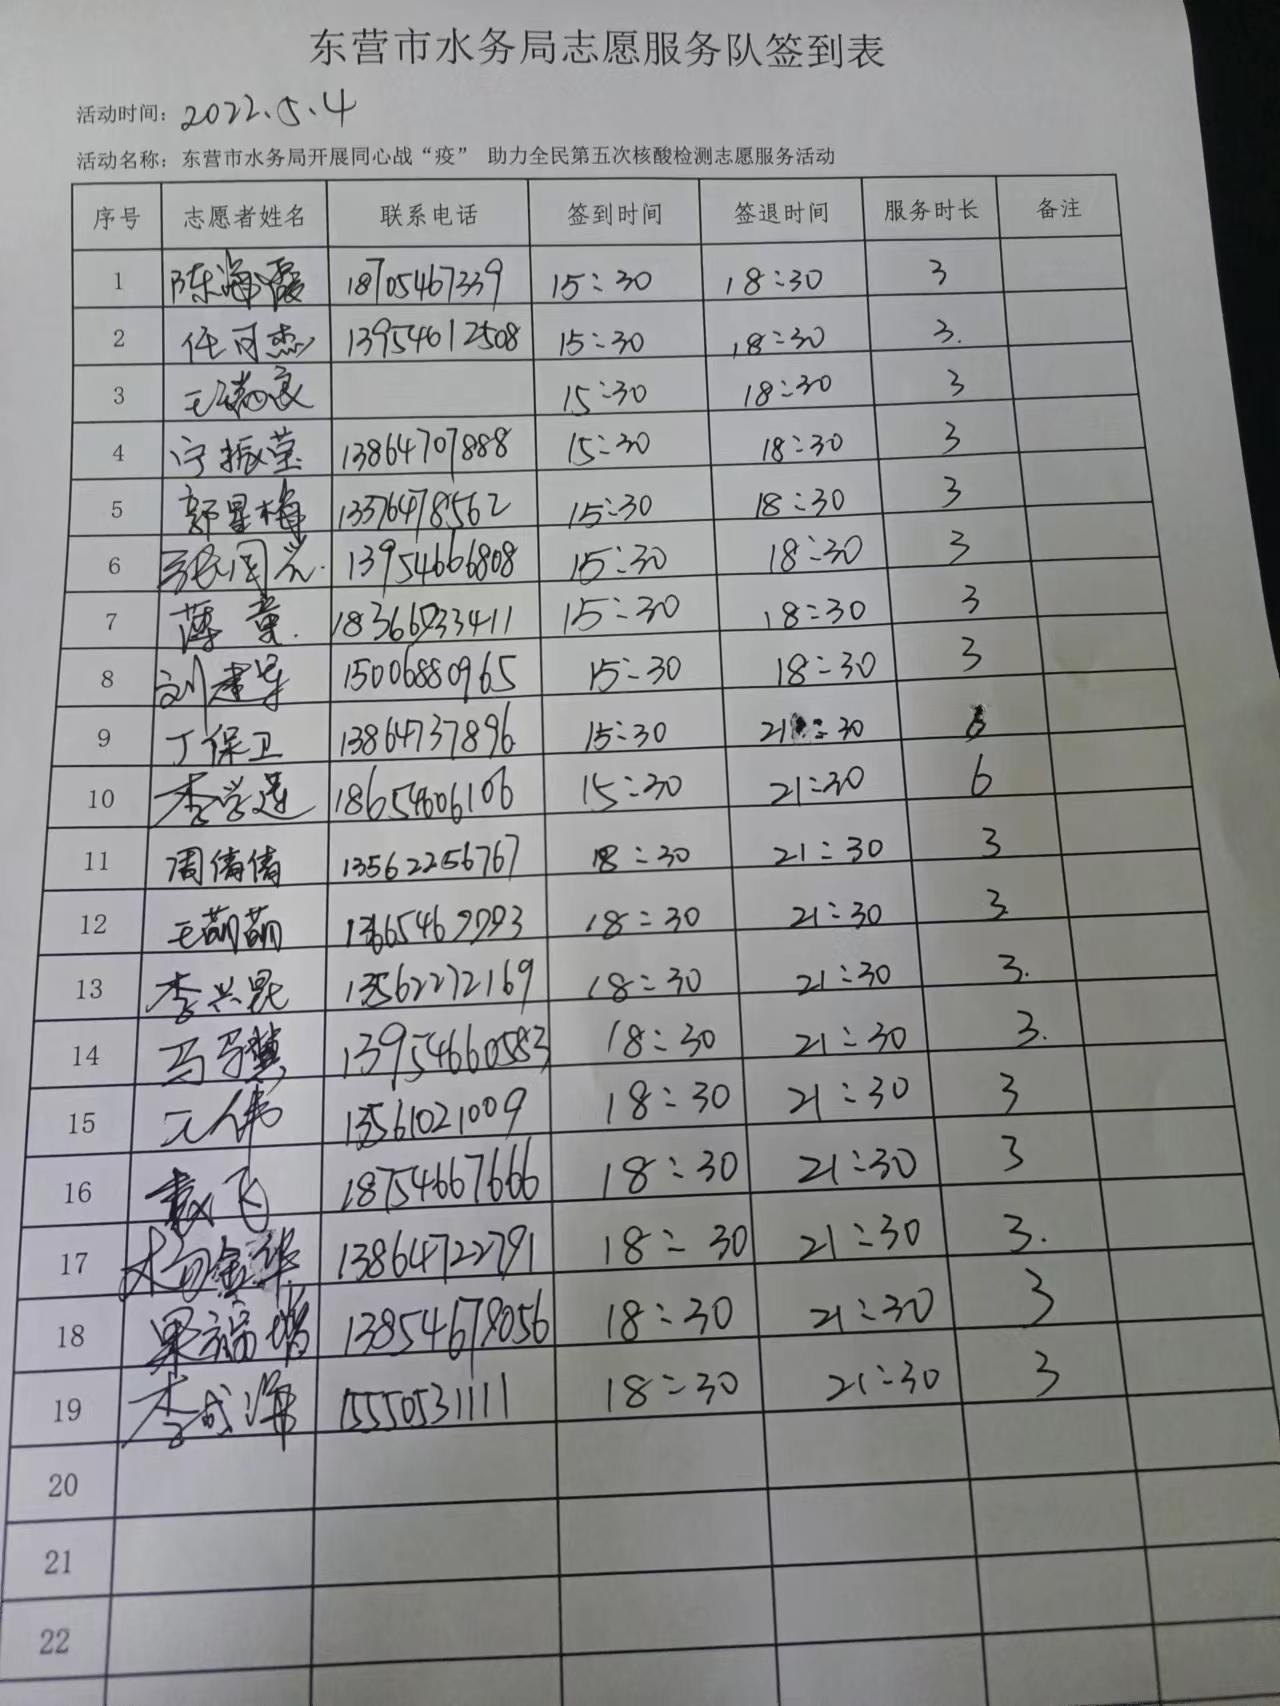 东营市水务局志愿服务队签到表
活动时间：2022.5.4
活动名称：东营市水务局开展同心战“疫” 助力全民第五次核酸检测志愿服务活动
序号 志愿者姓名 联系电话 签到时间 签退时间 服务时长 备注
1 陈海霞 18705467339 15:30 18:30 3
2 任可杰 13954612508 15:30 18:30 3.
3 15:30 18:30 3
4 宁振莹 13864707888 15:30 18:30 3
5 郭星梅 13376478562 15:30 18:30 3
6 13954666808 15:30 18:30 3
7 薄童. 15:30 18:30 3
8 刘建军 15006880965 15:30 18:30 3
9 丁保卫 13864737896 15:30 21:30
10 李学进 18654606106 15:30 21:30 6
11 周倩倩 13562256767 18:30 21:30 3
12 王萌萌 18:30 21:30 3
13 李兴昆 13562272169 18:30 21:30 3.
14 13954660583 18:30 21:30 3.
15 伟 13561021009 18:30 21:30 3
16 袁飞 18754667666 18:30 21:30 3
17 杨金华 13864722791 18:30 21:30 3.
18 13854678056 18:30 21:30 3
19 李成海 15550531111 18:30 21:30 3
20
21
22